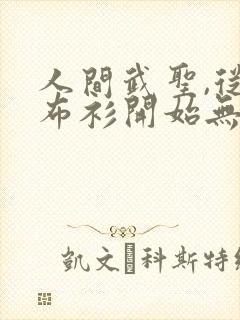 人間武聖,從
布衫開始無
凱文·科斯特納